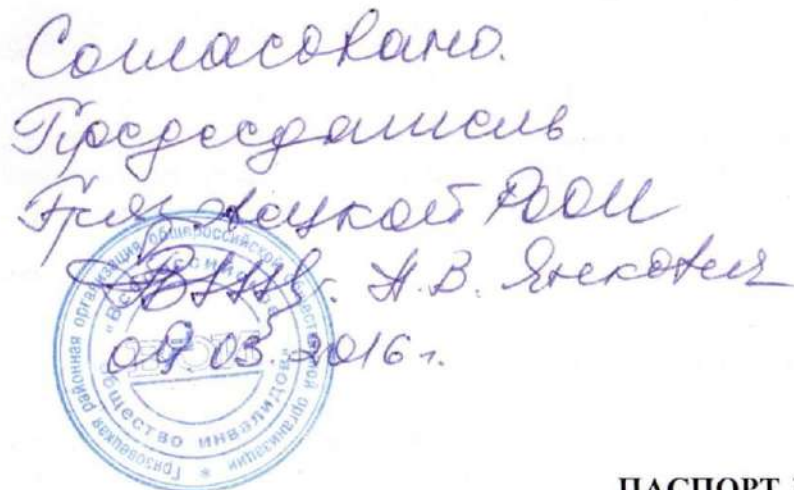 Согласовано.
Председатель
Грязовецкой РООИ
Н.В. Янкович
09.03.2016 г.
Грязовецкая районная организация общероссийской общественной организации *
"Всероссийское
общество инвалидов"
ПАСПОРТ